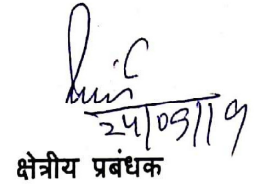 24/09/19
क्षेत्रीय प्रबंधक